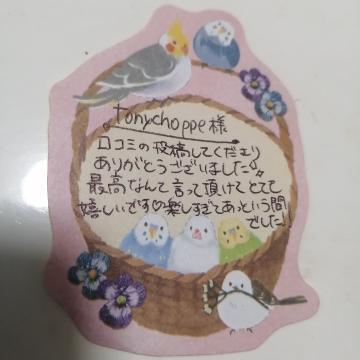 tonychoppe様
口コミの投稿してくださり
ありがとうございました
最高なんて言って頂けてとても
嬉しいです♡楽しすぎてあっという間
でした!